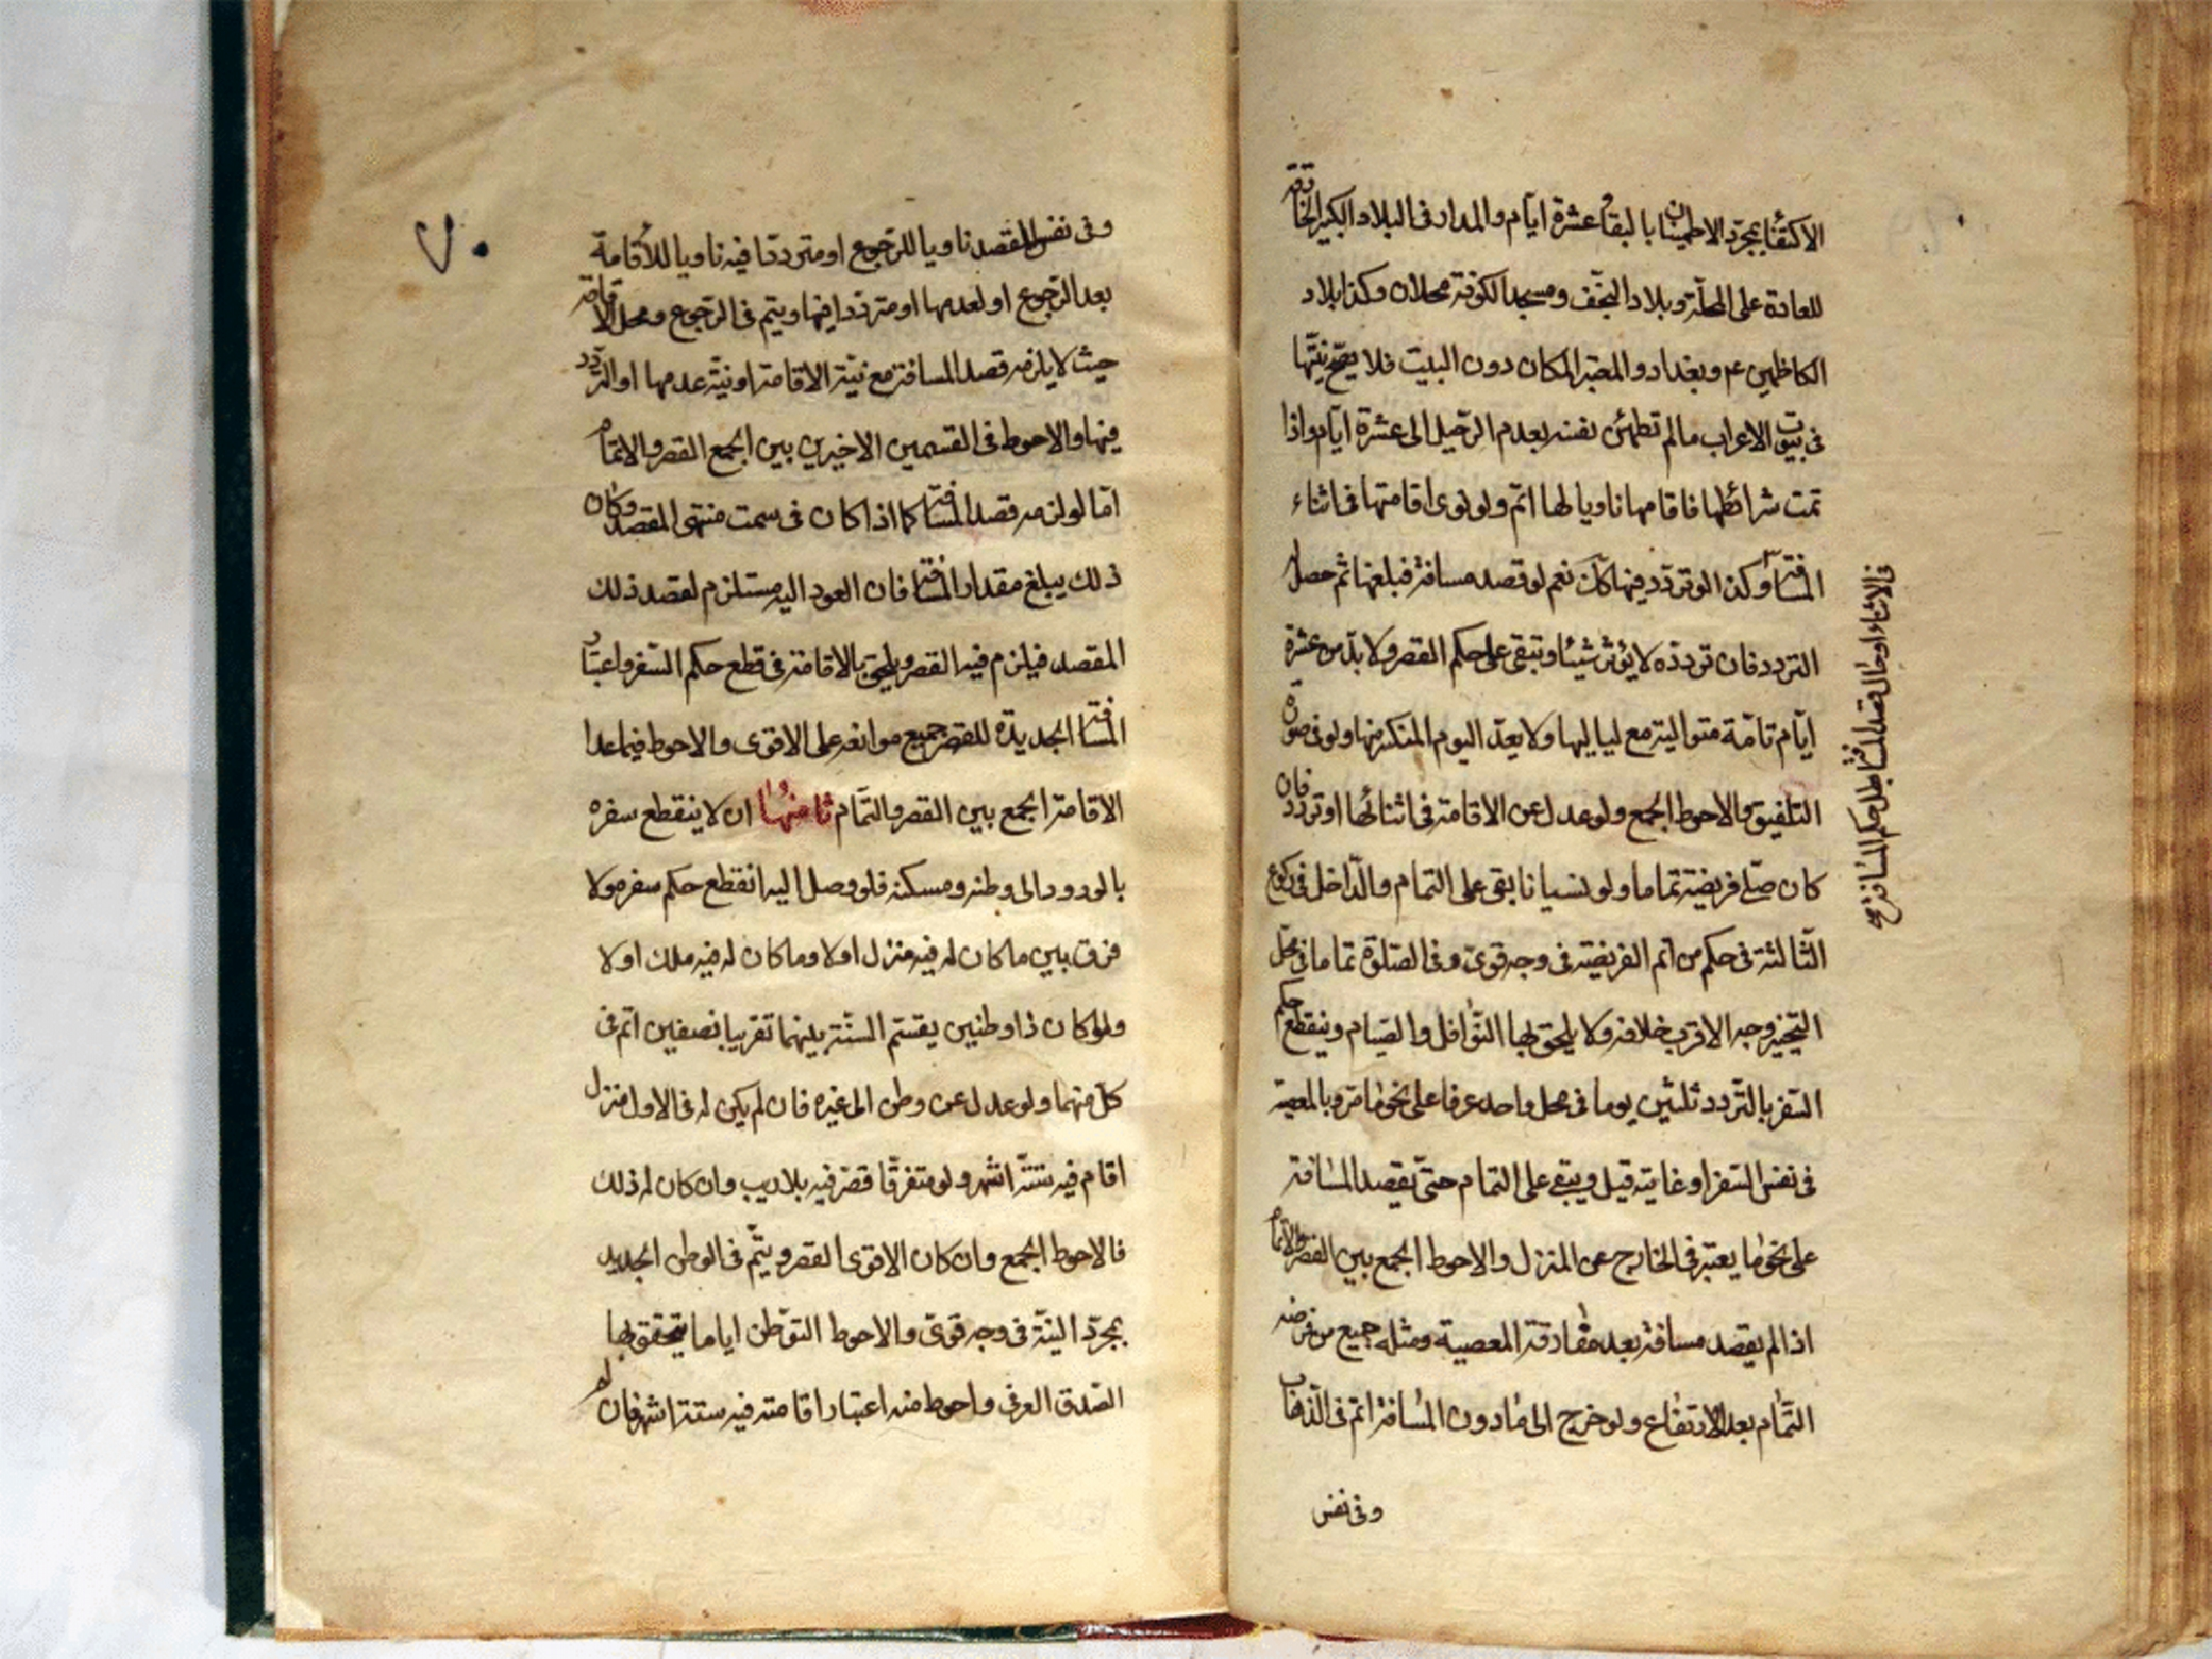 الاكتفٰا بمجرّد الاطمينان بالبقاء عشرة ايّام والمدار فى البلاد الكبيرة الخارقة
للعادة على المحلّة وبلاد النجف ومسجد الكوفة محلان وكذا بلاد
الكاظمين ع م وبغداد والمعتبر المكان دون البيت فلا يصّح نيّتها
فى بيوت الاعراب مالم تطمئن نفسه بعدم الرّحيل الى عشرة ايّام واذا
تمت شرائطها فاقامها ناويا لها اتمّ ولو نوى اقامتها فى اثناء
المسافة وكذا لو تردّد فيها كك نعم لو قصد مسافة فبلغها ثم حصل له
التردد فان تردده لا يؤثر شيئا وتبقى على حكم القصر ولا بدّ من عشرة
ايّام تامّة متوالية مع لياليها ولا يعدّ اليوم المنكسر منها ولو فى صورة
التلفيق والاحوط الجمع ولو عدل عن الاقامة فى اثنائها او تردد فان
كان صلّى فريضة تماما ولو نسيانا بقى على التمام والدّاخل فى ركوع
الثّالثة فى حكم من اتم الفريضة فى وجه قوىّ وفى الصّلوة تماما فى محلّ
التّخيير وجه الاقرب خلافه ولا يلحق بها النّوافل والصّيام وينقطع حكم
السّفر بالتّردد ثلثين يوما فى محل واحد عرفا على نحو ما مرّ وبالمعصية
فى نفس السّفر او غايته قيل ويبقى على التمام حتّى يقصد المسٰافة
على نحو مٰا يعتبر فى الخارج عن المنزل والاحوط الجمع بين القصر والاتمام
اذا لم يقصد مسافة بعد مفٰارقة المعصية ومثله جميع من فرضه
التّمٰام بعد الارتفٰاع ولو خرج الى مٰا دون المسٰافة اتم فى الذّهاب
وفى نفس
فى الاثناء او حال قصد المسافة بطل حكم المسافة صح
٧٠
وفى نفس المقصد ناويا للرّجوع او متردّدا فيه ناويا للاقامة
بعد الرّجوع او لعدمها او متردّدا فيها ويتم فى الرّجوع ومحل الاقامة
حيث لا يلزمه قصد المسافة مع نيّة الاقامة او نيّة عدمها او التّردّد
فيها والاحوط فى القسمين الاخيرين بين الجمع القصر والاتمام
امّا لو لزمه قصد المسافة كما اذا كان فى سمت منتهى المقصد وكان
ذلك يبلغ مقدار المسافة فان العود اليه مستلزم لقصد ذلك
المقصد فيلزم فيه القصر ويلحق بالاقامة فى قطع حكم السّفر واعتبار
المسافة الجديدة للقصر جميع موانعه على الاقوى والاحوط فيما عدا
الاقامة الجمع بين القصر والتّمام ثامنها ان لا ينقطع سفره
بالورود الى وطنه ومسكنه فلو وصل اليه انقطع حكم سفره ولا
فرق بين ما كان له فيه منزل اولا وما كان له فيه ملك اولا
ولو كان ذا وطنين يقسّم السّنة بينهما تقريبا نصفين اتم فى
كلّ منهما ولو عدل عن وطن الى غيره فان لم يكن له فى الاول منزل
اقام فيه ستّة اشهر ولو متفرقا قصّر فيه بلا ريب وان كان له ذلك
فالاحوط الجمع وان كان الاقوى القصر ويتّم فى الوطن الجديد
بمجرّد النيّة فى وجه قوىّ والاحوط التوّطن اياما يتحقق بها
الصّدق العرفى واحوط منه اعتبار اقامته فيه ستة اشهر فان لم